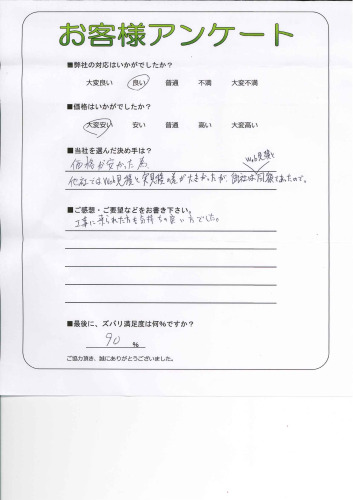 お客様アンケート
■弊社の対応はいかがでしたか？
大変良い 良い 普通 不満 大変不満
■価格はいかがでしたか？
大変安い 安い 普通 高い 大変高い
■当社を選んだ決め手は？
価格が安かった為
Web見積と
他社ではWeb見積と実見積の差が大きかったが、御社は同額であったので。
■ご感想・ご要望などをお書き下さい。
工事に来られた方も気持ちの良い方でした。
■最後に、ズバリ満足度は何%ですか？
90 %
ご協力頂き、誠にありがとうございました。